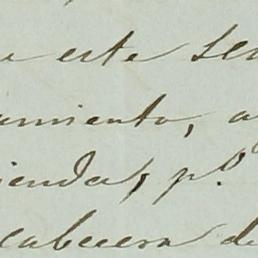 e este se
amiento, a
ienda, p.º
cabecera de